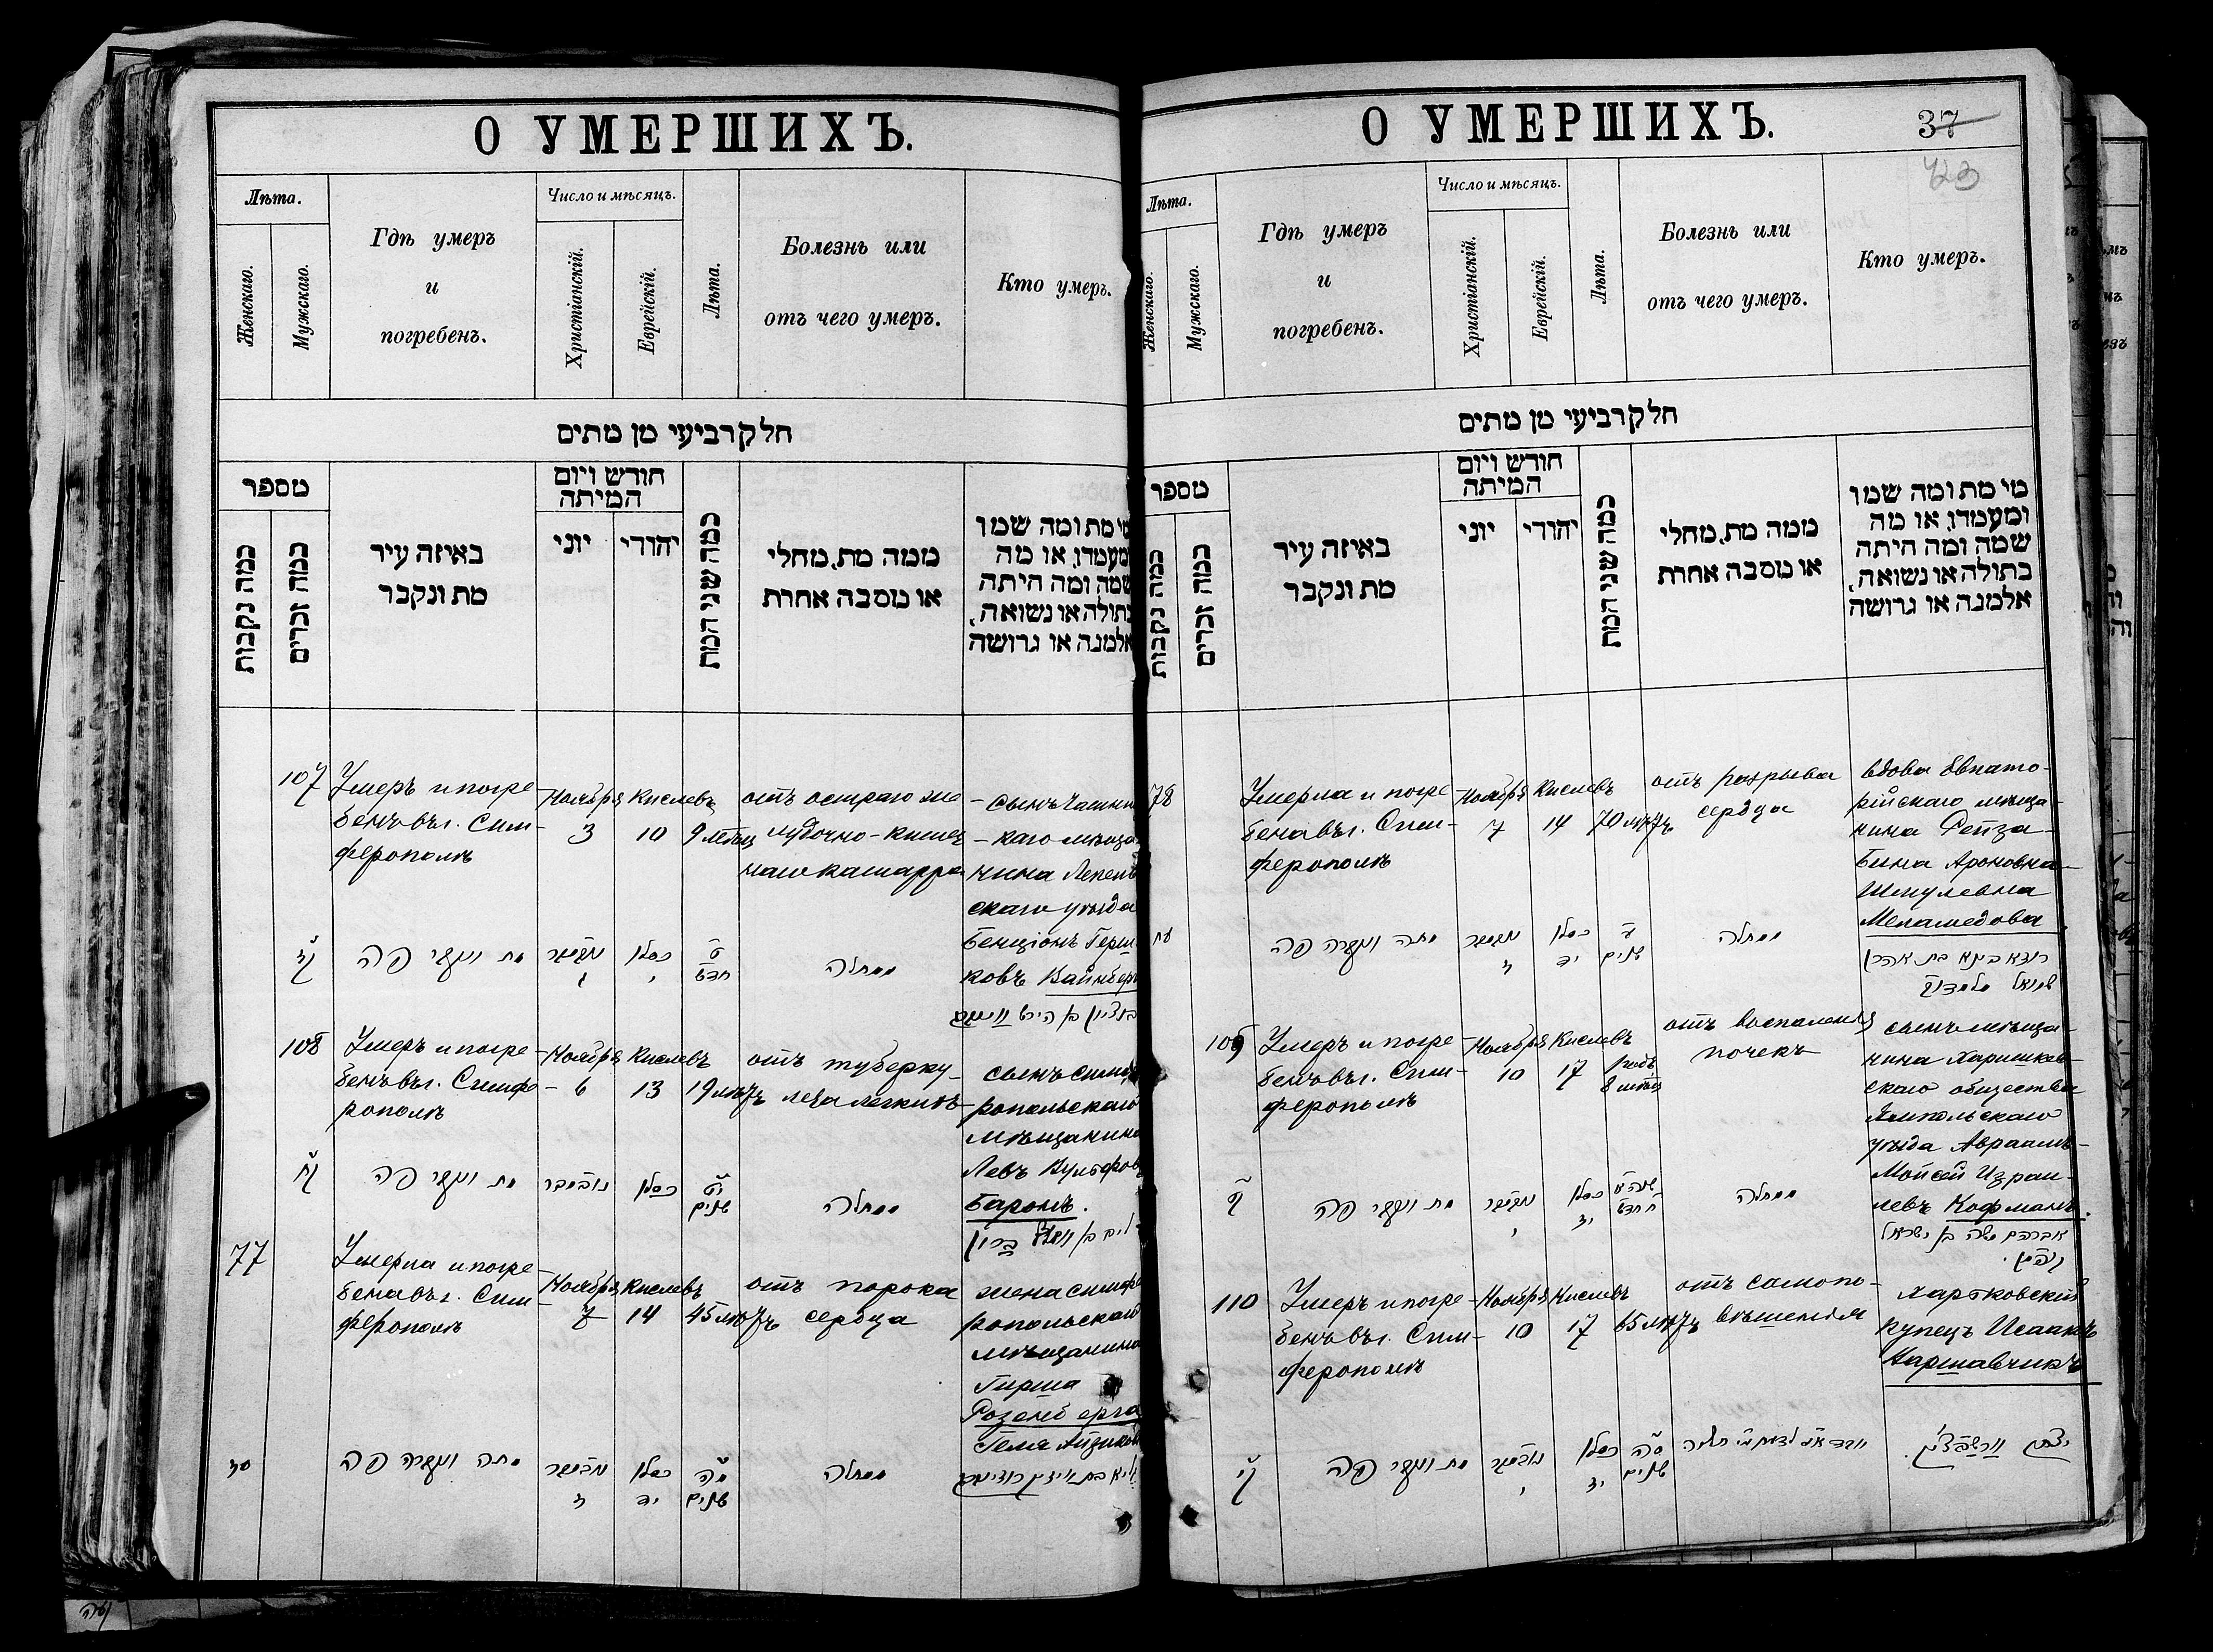 О УМЕРШИХЪ.
Лѣта.
Женскаго.
Мужскаго.
Гдѣ умеръ
и
погребенъ.
Число и мѣсяцъ.
Христіанскій.
Еврейскій.
Лѣта.
Болезнь или
отъ чего умеръ.
Кто умеръ.
חלק רביעי מן מתים
מספר
כמה נקבות
כמה זכרים
באיזה עיר
מת ונקבר
חודש ויום
המיתה
יוני
יהודי
כמה שני המת
ממה מת, מחלי
או מסבה אחרת
מי מת ומה שמו
ומעמדו, או מה
שמה ומה היתה
בתולה או נשואה,
אלמנה או גרושה
107
Умеръ и погре-
бенъ въ г. Сим-
ферополѣ
Ноября
3
Кислевъ
10
9 мѣсяц
отъ остраго же
лудочно-кишеч
наго катарра
сынъ Чашник
каго мѣща-
нина Лепель
скаго уѣзда
Бенціонъ Герш
ковъ Вайнберг
קז
מת ונקבר פה
נובמבר
ג
כסלו
י
ט
חדש
מחלה
בן ציון בן הירש
108
Умеръ и погре-
бенъ въ г. Симфе-
рополѣ
Ноября
6
Кислевъ
13
19 лѣтъ
отъ туберку-
леза легкихъ
сынъ симфе
ропольскаго
мѣщанина
Левъ Вульфовъ
Баронъ.
קח
מת ונקבר פה
נובמבר
כסלו
יט
שנים
מחלה
ברון
77
Умерла и погре-
бена въ г. Сим-
ферополѣ
Ноября
7
Кислевъ
14
45 лѣтъ
отъ порока
сердца
жена симфе
ропольскаго
мѣщанина
Гирша
Розенберга
Геля Айзиков
עז
מתה ונקברה פה
נובמבר
ז
כסלו
יד
מה
שנים
מחלה
О УМЕРШИХЪ.
37
423
Лѣта.
Женскаго.
Мужскаго.
Гдѣ умеръ
и
погребенъ.
Число и мѣсяцъ.
Христіанскій.
Еврейскій.
Лѣта.
Болезнь или
отъ чего умеръ.
Кто умеръ.
חלק רביעי מן מתים
מספר
כמה נקבות
כמה זכרים
באיזה עיר
מת ונקבר
חודש ויום
המיתה
יוני
יהודי
כמה שני המת
ממה מת, מחלי
או מסבה אחרת
מי מת ומה שמו
ומעמדו, או מה
שמה ומה היתה
בתולה או נשואה,
אלמנה או גרושה
78
Умерла и погре-
бена въ г. Сим-
ферополѣ
Ноября
7
Кислевъ
14
70 лѣтъ
отъ разрыва
сердца
вдова Евпато-
рійскаго мѣща-
нина Рейза-
Бина Ароновна-
Шмулевна
Меламедова.
עח
מתה ונקברה פה
נובמבר
ז
כסלו
יד
ע
שנים
מחלה
רוזא בינא בת אהרן
שמואל
109
Умеръ и погре-
бенъ въ г. Сим-
ферополѣ
Ноября
10
Кислевъ
17
1 годъ
8 мѣсяц
отъ воспаленія
почекъ
сынъ мѣща-
нина
скаго общества
Ямпольскаго
уѣзда Авраамъ-
Мойсей Израи-
левъ Кофманъ.
קט
מת ונקבר פה
נובמבר
י
כסלו
יז
שנה א
ח חדש
מחלה
אברהם משה בן ישראל
קופמן.
110
Умеръ и погре-
бенъ въ г. Сим-
ферополѣ
Ноября
10
Кислевъ
17
65 лѣтъ
отъ самопо-
вѣшенія
харьковскій
купецъ Исаакъ
Варшавчикъ
קי
מת ונקבר פה
נובמבר
י
כסלו
יז
סה
שנים
יצחק